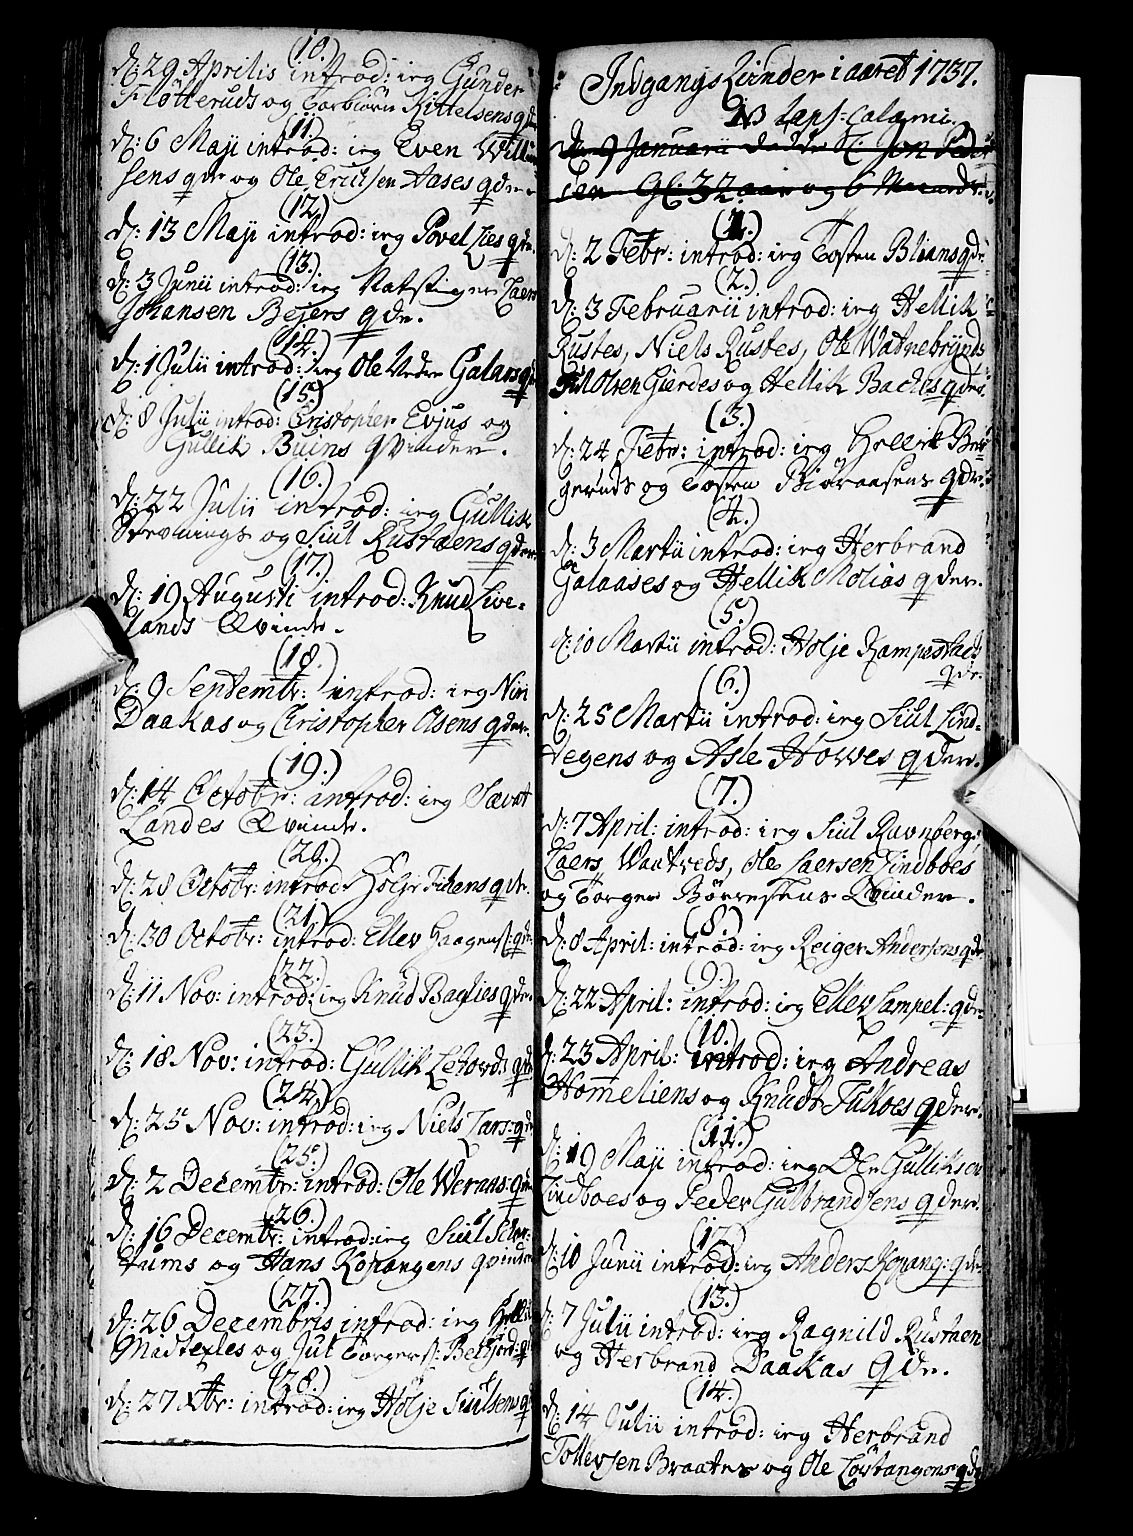 (10.)
d: 29 Aprilis introd: ieg Gunder
Flötteruds og Torbiörn Kittelsens q dr
(11.)
d: 6 Maji introd: ieg Even Will
sens q dr og Ole Ericksen Aases q der
(12.)
d: 13 Maji introd: ieg Povel Lies q dr.
(13.)
d: 3 Junii introd: ieg Laers
Johansen Bejers q dr.
(14.)
d: 1 Julii introd: ieg Ole Galaas q
(15.)
d: 8 Julii introd: Cristopher Evjus og
Gullik Buins qvinder.
(16.)
d: 22 Julii introd: ieg Gullik
og Siul Rustæens q der
(17.)
d: 19 Augusti introd: Knud Live-
lands Qvinde.
(18.)
d: 9 Septembr: introd: ieg Niri
Daakas og Christopher Olsens q der.
(19.)
d: 14 Octobr: introd: ieg Sævat
Landes Qvinde.
(20.)
d: 28 Octobr: introd Holje Fikens q dr.
(21.)
d: 30 Octobr: introd: Ellev Haagens: q dr
(22.)
d: 11 Nov: introd: ieg Knud Baglies q dr
(23.)
d: 18 Nov: introd: Gullik q dr
(24.)
d: 25 Nov: introd: ieg Niels Lars: q dr
(25.)
d: 2 Decembr: introd: Ole Weraas: q dr
(26.)
d: 16 Decembr: introd: ieg Siul
tums og Hans Kopangens qvinder
(27.)
d: 26 Decembris introd: ieg
og Jul Torgers: q
(28.)
d: 27 Xbr: introd: ieg Holje Siulsens q
Indgangs Qvinder i aaret 1737.
NB Laps: Calami.
d: 9 Januarii döde Jon Peder
sen Gl: 32 aar og 6 Maaneder
(1.)
d: 2 Febr: introd: ieg Tosten Blians q dr.
(2.)
d: 3 Februarii introd: ieg Hellik
Rustes, Niels Rustes, Ole Watnebrÿnds
Olsen Gierdes og Hellik Backes q der
(3.)
d: 24 Febr: introd: ieg Hellik Ber
geruds og Tosten Biöraasens q dr.
(4.)
d: 3 Martii introd: ieg Herbrand
Galaases og Hellik Molias q der.
(5.)
d: 10 Martii introd: Holje Kampestads
q dr.
(6.)
d: 25 Martii introd: ieg Siul Lind-
tegens og Asle Howes q der.
(7.)
d: 7 April: introd: ieg Siul Ravnbergs,
Laers Waatveds, Ole Laersen Lindboes
og Torger Börresens Qvinder.
(8.)
d: 8 April: introd: ieg Reiger Andersöns q dr
(9.)
d: 22 April: introd: ieg Ellev Lampel: q dr
(10.)
d: 23 April: introd: ieg Andreas
Homeliens og Knudt Fukoes q der.
(11.)
d: 19 Maji introd: ieg Ole Gulliksen
Lindboes og Peder Gulbrandsens q der.
(12.)
d: 10 Junii introd: ieg Anders Kopang: q dr.
(13.)
d: 7 Julii introd: ieg Ragnild Rustæen
og Herbrand Daakas q dr.
(14.)
d: 14 Julii introd: ieg Herbrand
Tollevsen Braaten og Ole Löstangens q dr